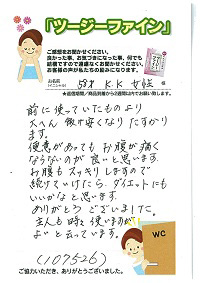 「ツージーファイン」
ご感想をお聞かせください。
良かった事、お気づきになった事、何でも
結構ですので遠慮なくお聞かせください。
お客様の声が私たちの励みになります。
お名前
(イニシャル)
58才 K.K 女性 様
前に使っていたものより
大へん飲み安くなりたすかり
ます。
便意があってもお腹が痛く
ならないのが良いと思います。
お腹もスッキリしますので
続けていけたら、ダイエットにも
いいかなと思います。
ありがとうございました。
主人も時々使いますが
よいと云っています。
WC
(107526)
ご協力いただき、ありがとうございました。